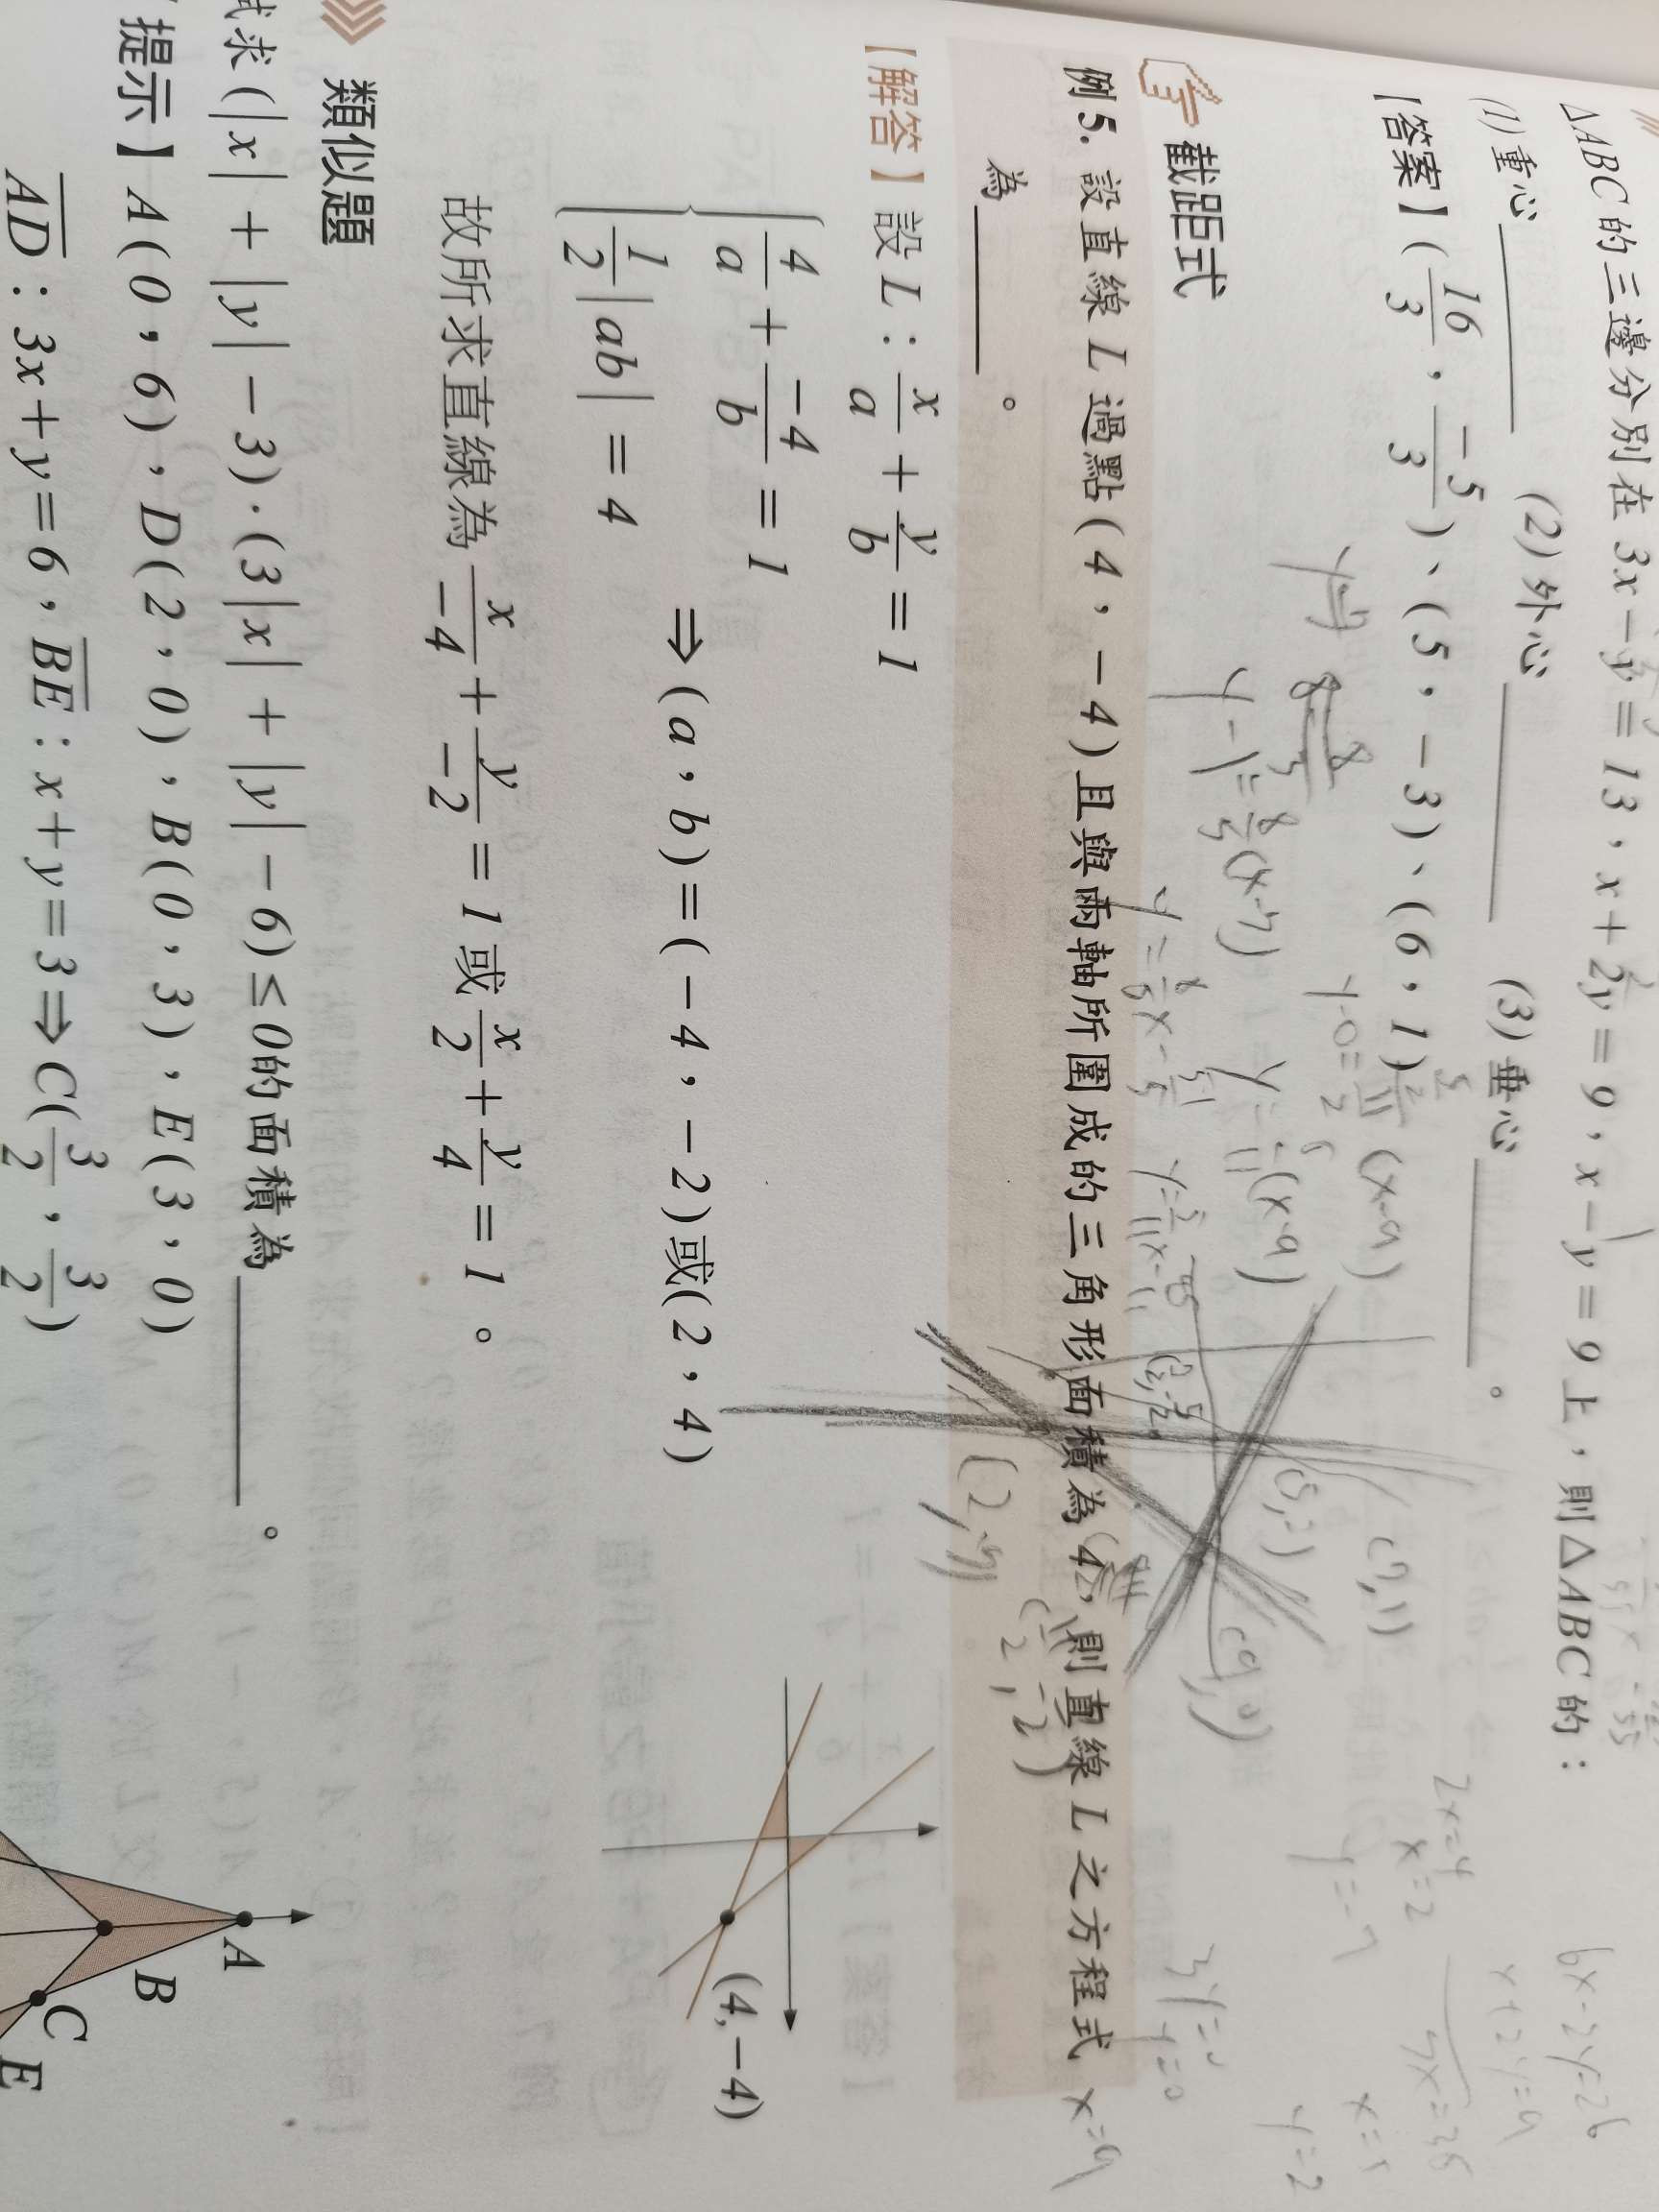 △ABC的三邊分別在 3x－y＝13，x＋2y＝9，x－y＝9上，則△ABC的：
(1)重心＿＿＿ (2)外心＿＿＿ (3)垂心＿＿＿。
【答案】(16/3，－5/3)、(5，－3)、(6，1)
y－1＝8/5(x－7)
(5,2)
(7,1)
(9,0)
(2,-7)
2x=4
x=2
y=-7
6x-2y=26
x+2y=9
7x=35
x=5
y=2
3y=0
y=0
x=9
截距式
例5. 設直線 L 過點(4，－4)且與兩軸所圍成的三角形面積為4，則直線 L 之方程式
為＿＿＿。
【解答】設 L：x/a＋y/b＝1
{4/a＋－4/b＝1
1/2|ab|＝4
⇒(a，b)＝(－4，－2)或(2，4)
(4,－4)
故所求直線為 x/－4＋y/－2＝1或x/2＋y/4＝1。
類似題
試求(|x|＋|y|－3)·(3|x|＋|y|－6)≤0的面積為＿＿＿。
提示】A(0，6)，D(2，0)，B(0，3)，E(3，0)
AD：3x＋y＝6，BE：x＋y＝3⇒C(3/2，3/2)
A
B
C
E